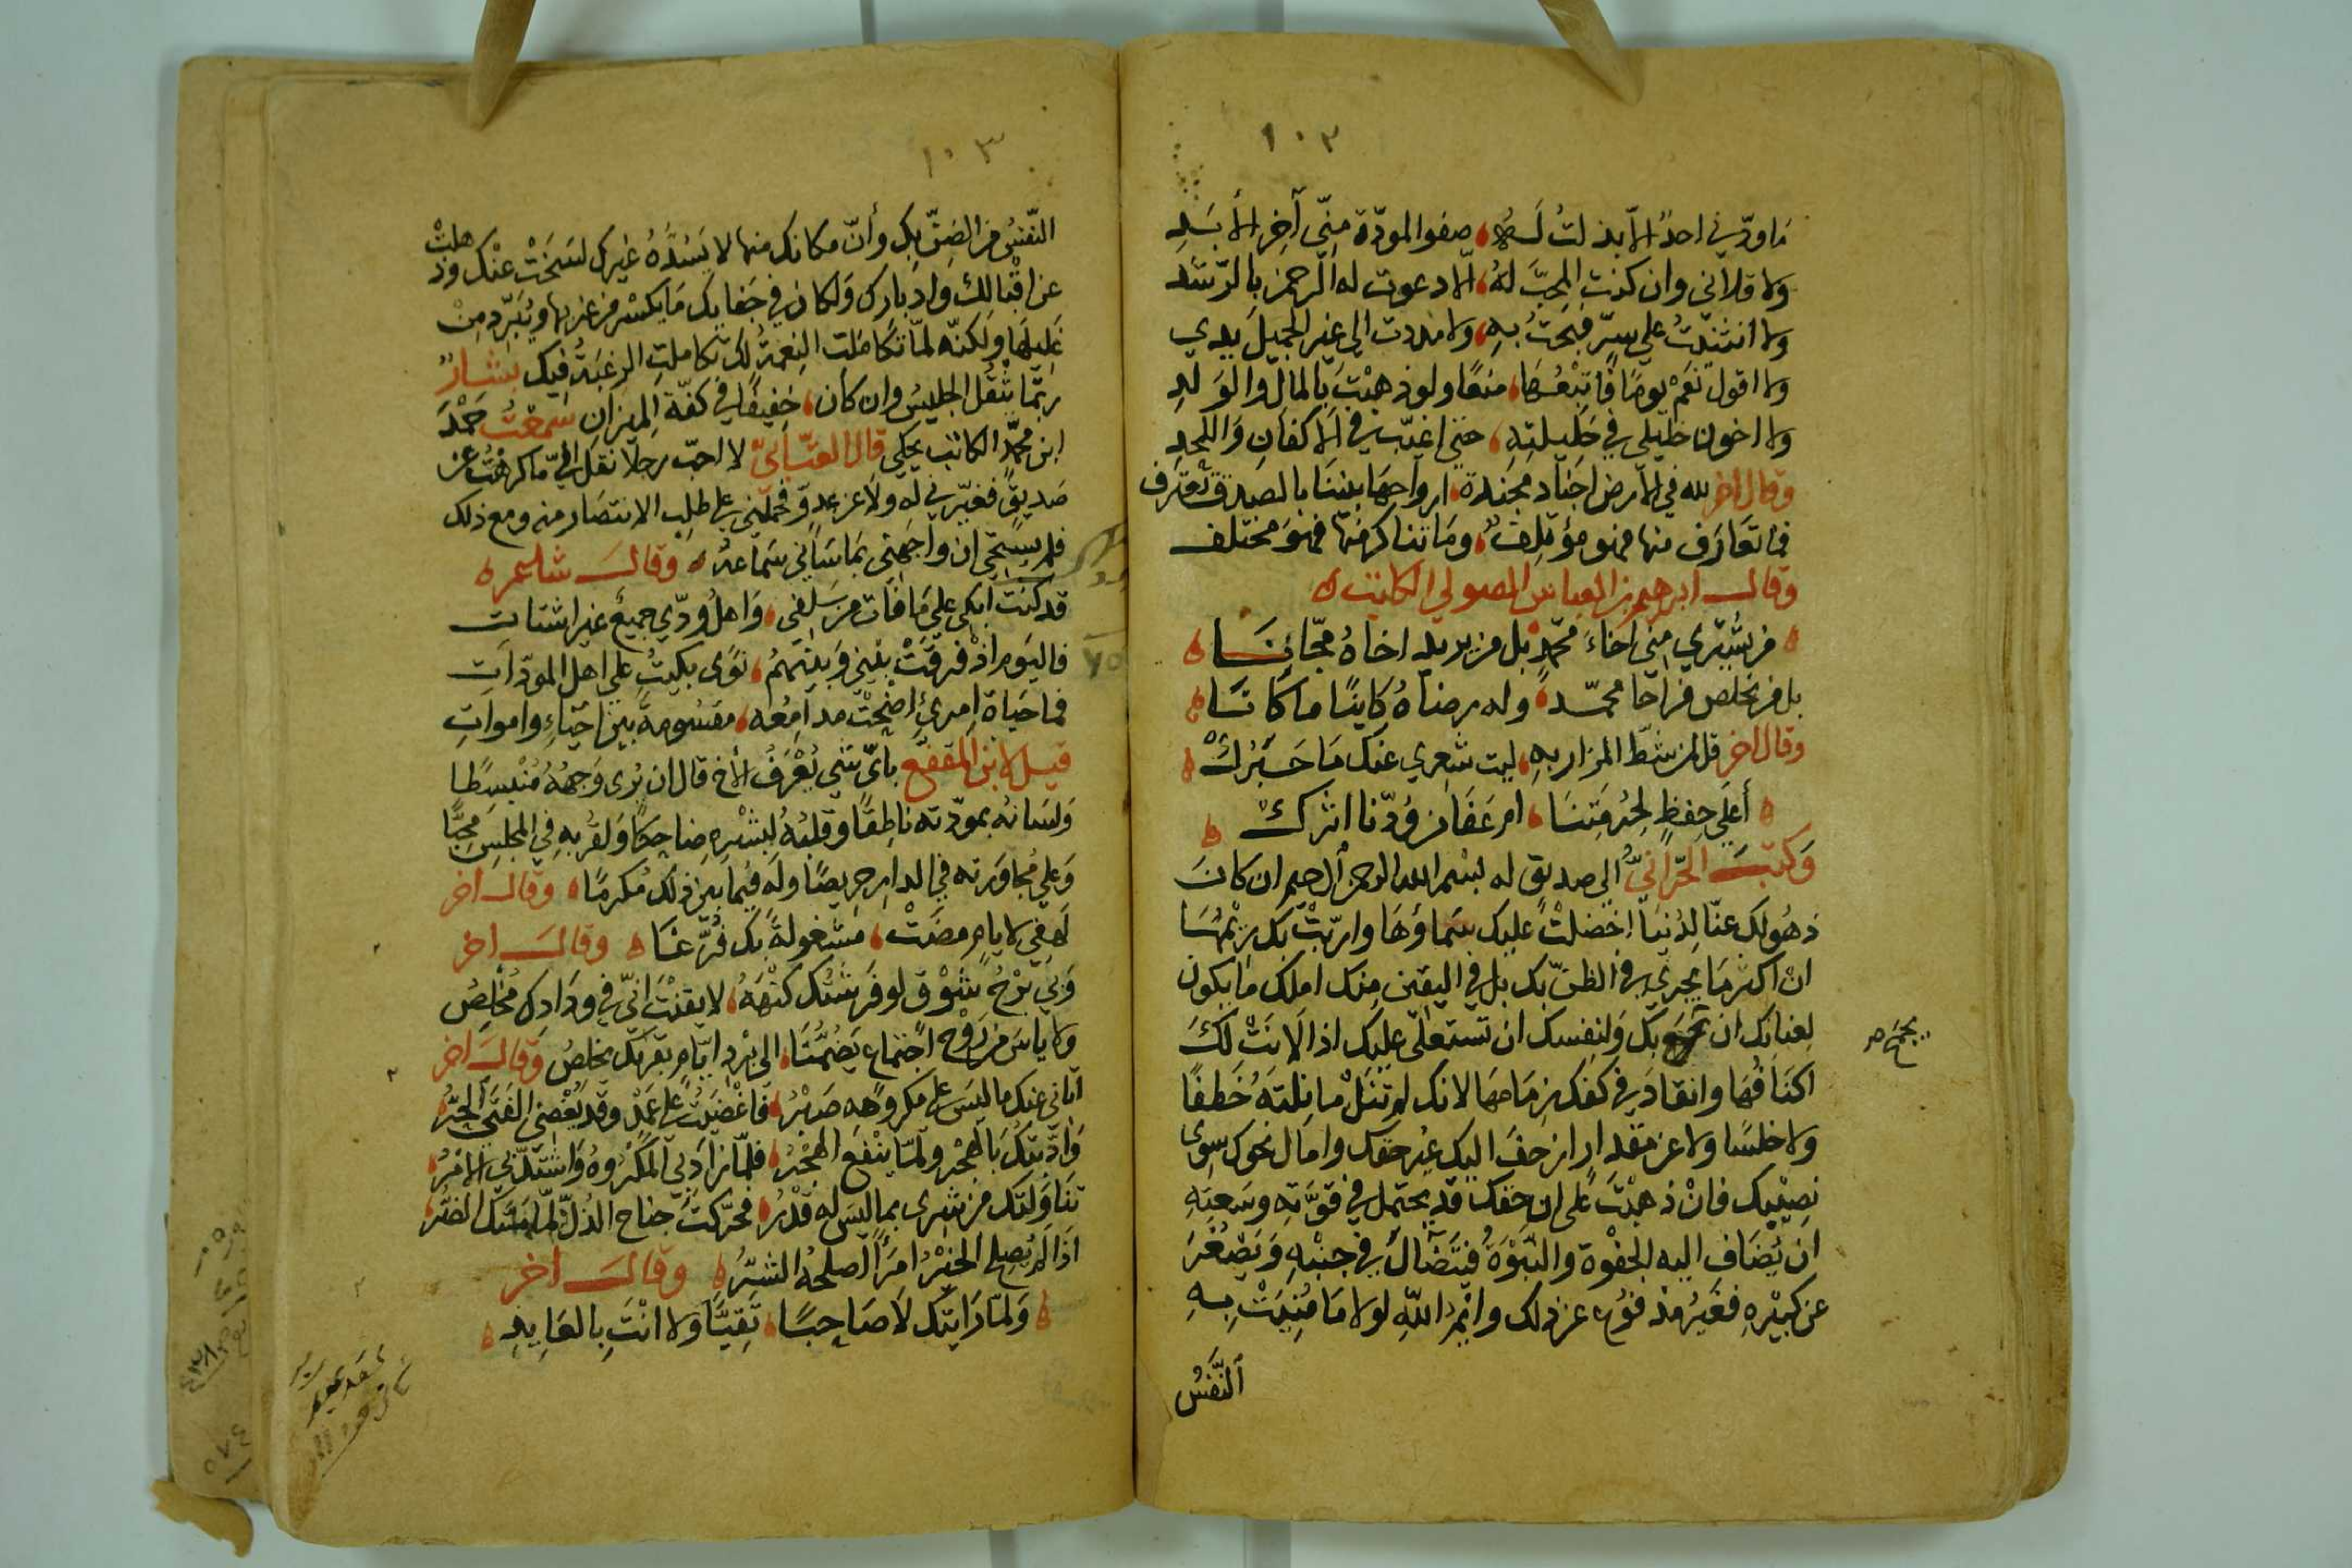 ١٠٢
ما ودّني احدٌ الّا بذلتُ لهُ صفو المودّة منّي آخر الأبدِ
ولا قلاني وان كنت المحبّ لهُ الّا دعوت له الرحمن بالرّشد
ولا ائتمنتُ على سرٍّ فبحتُ بهِ ولا مددت الى غير الجميل يدي
ولا اقول نعم يومًا فاتبعُها منعًا ولو ذهبت بالمال والولدِ
ولا اخون خليلي في حليلتهِ حتى اغيّب في الاكفان واللحدِ
وقال اخر لله في الارض اجناد مجندة ارواحها بيننا بالصدق تعترف
فما تعارف منها فهو مؤتلفٌ وما تناكر منها فهو مختلف
وقال ابرهيم بن العباس الصولي الكاتب
من يشتري منّي اخاءَ محمّدٍ بل من يريد اخاهُ مجّانا
بل من يخلص من اخا محمّدٍ وله رضاهُ كاينًا ما كانا
وقال اخر قل لمن شطّ المزار بهِ ليت شعري عنك ما خبرك
أعلى حفظٍ لحرمتنا ام عفا من ودّنا اثرك
وكتب الحرّانيّ الى صديق له بسم الله الرحمن الرحيم ان كان
ذهولك عنّا لدنيا اخضلتْ عليك سماؤها واربّتْ بك ديمها
انّ اكثر ما يجري في الظنّ بك بل في اليقين منك املك ما يكون
لعنانك ان يجمح بك ولنفسك ان تستعلي عليك اذا لانتْ لك
يجمح
اكنافها وانقاد في كفك زمامها لانك لم تنل ما نلته خطفًا
ولا خلسًا ولا عن مقدار ازحف اليك غير حقك وامال نحوك سوى
نصيبك فانْ ذهبْتَ الى ان حقك قد يحتمل في قوّته وسعته
ان يضاف اليه الجفوة والنبوة فيتضآل في جنبهِ ويصغر
عن كبيرهِ فغير مدفوع عن ذلك وايم الله لولا ما مُنيتْ بهِ
النفس
١٠٣
النّفس من الضنّ بك وأنّ مكانك منها لا يسدّهُ غيرك لسخت عنك وذهلتْ
عن اقبالك وادبارك ولكان في جفايك ما يكسر من غربها ويُبرّد منْ
غليلها ولكنّه لمّا تكاملت النعمة لك تكاملت الرغبة فيك بشارٌ
ربّما يثقل الجليس وان كان خفيفًا في كفّة الميزان سمعتُ حمْدَ
ابن محمّدٍ الكاتب يحكي قال العتّابيّ لا احبّ رجلا نقل اليّ ما كرهت عن
صديقٍ فغيّرني له ولا عن عدوّ فحملني على طلب الانتصار منه ومع ذلك
فلم يستحي ان واجهني بما ساني سماعهُ وقال شاعر
قد كنت ابكي على ما فات من سلفي واهل ودّي جميعٌ غير اشتات
فاليوم اذ فرقتْ بيني وبينهم نوًى بكيتُ على اهل المودّات
فما حياة امرئٍ اضحت مدامعه مقسومة بين احياءٍ وامواتِ
قيل لابن المقفع بايّ شي يُعْرَفُ الأخ قال ان يُرى وجههُ منبسطًا
ولسانهُ بمودّته ناطقًا وقلبهُ ببشرهِ ضاحكًا ولقربهِ في المجلس محبًّا
وعلى مجاورته في الدار حريصًا وله فيما بين ذلك مكرمًا وقال اخر
لهفي لايامٍ مضتْ مشغولةً بك فُرّغا وقال اخر
وبي برْحُ شوْقٍ لو فرشتك كنههُ لايقنْت انّي في ودادك مخلصُ
ولا ياس من روْح اجتماع يضمّنا الى برْد ايّامٍ بقربك يخلصُ وقال اخر
اتاني عنك ما ليس على مكروهه صبرُ فاغضيتُ على عمْدٍ وقد يُغضي الفتى الحرُّ
وادّبتك بالهجْر ولمّا ينفع الهجْرُ فلمّا زادني المكروهُ واشتدّ بي الامرُ
تناولتك من شرّي بما ليس له قدْرُ فحرّكت جناح الذلّ لمّا مسّك الضرّ
اذا لم يُصلح الخيْرُ امرَأً اصلحهُ الشرُّ وقال اخر
ولمّا رايتك لا صاحبًا تقيًّا ولا انتَ بالعابدِ